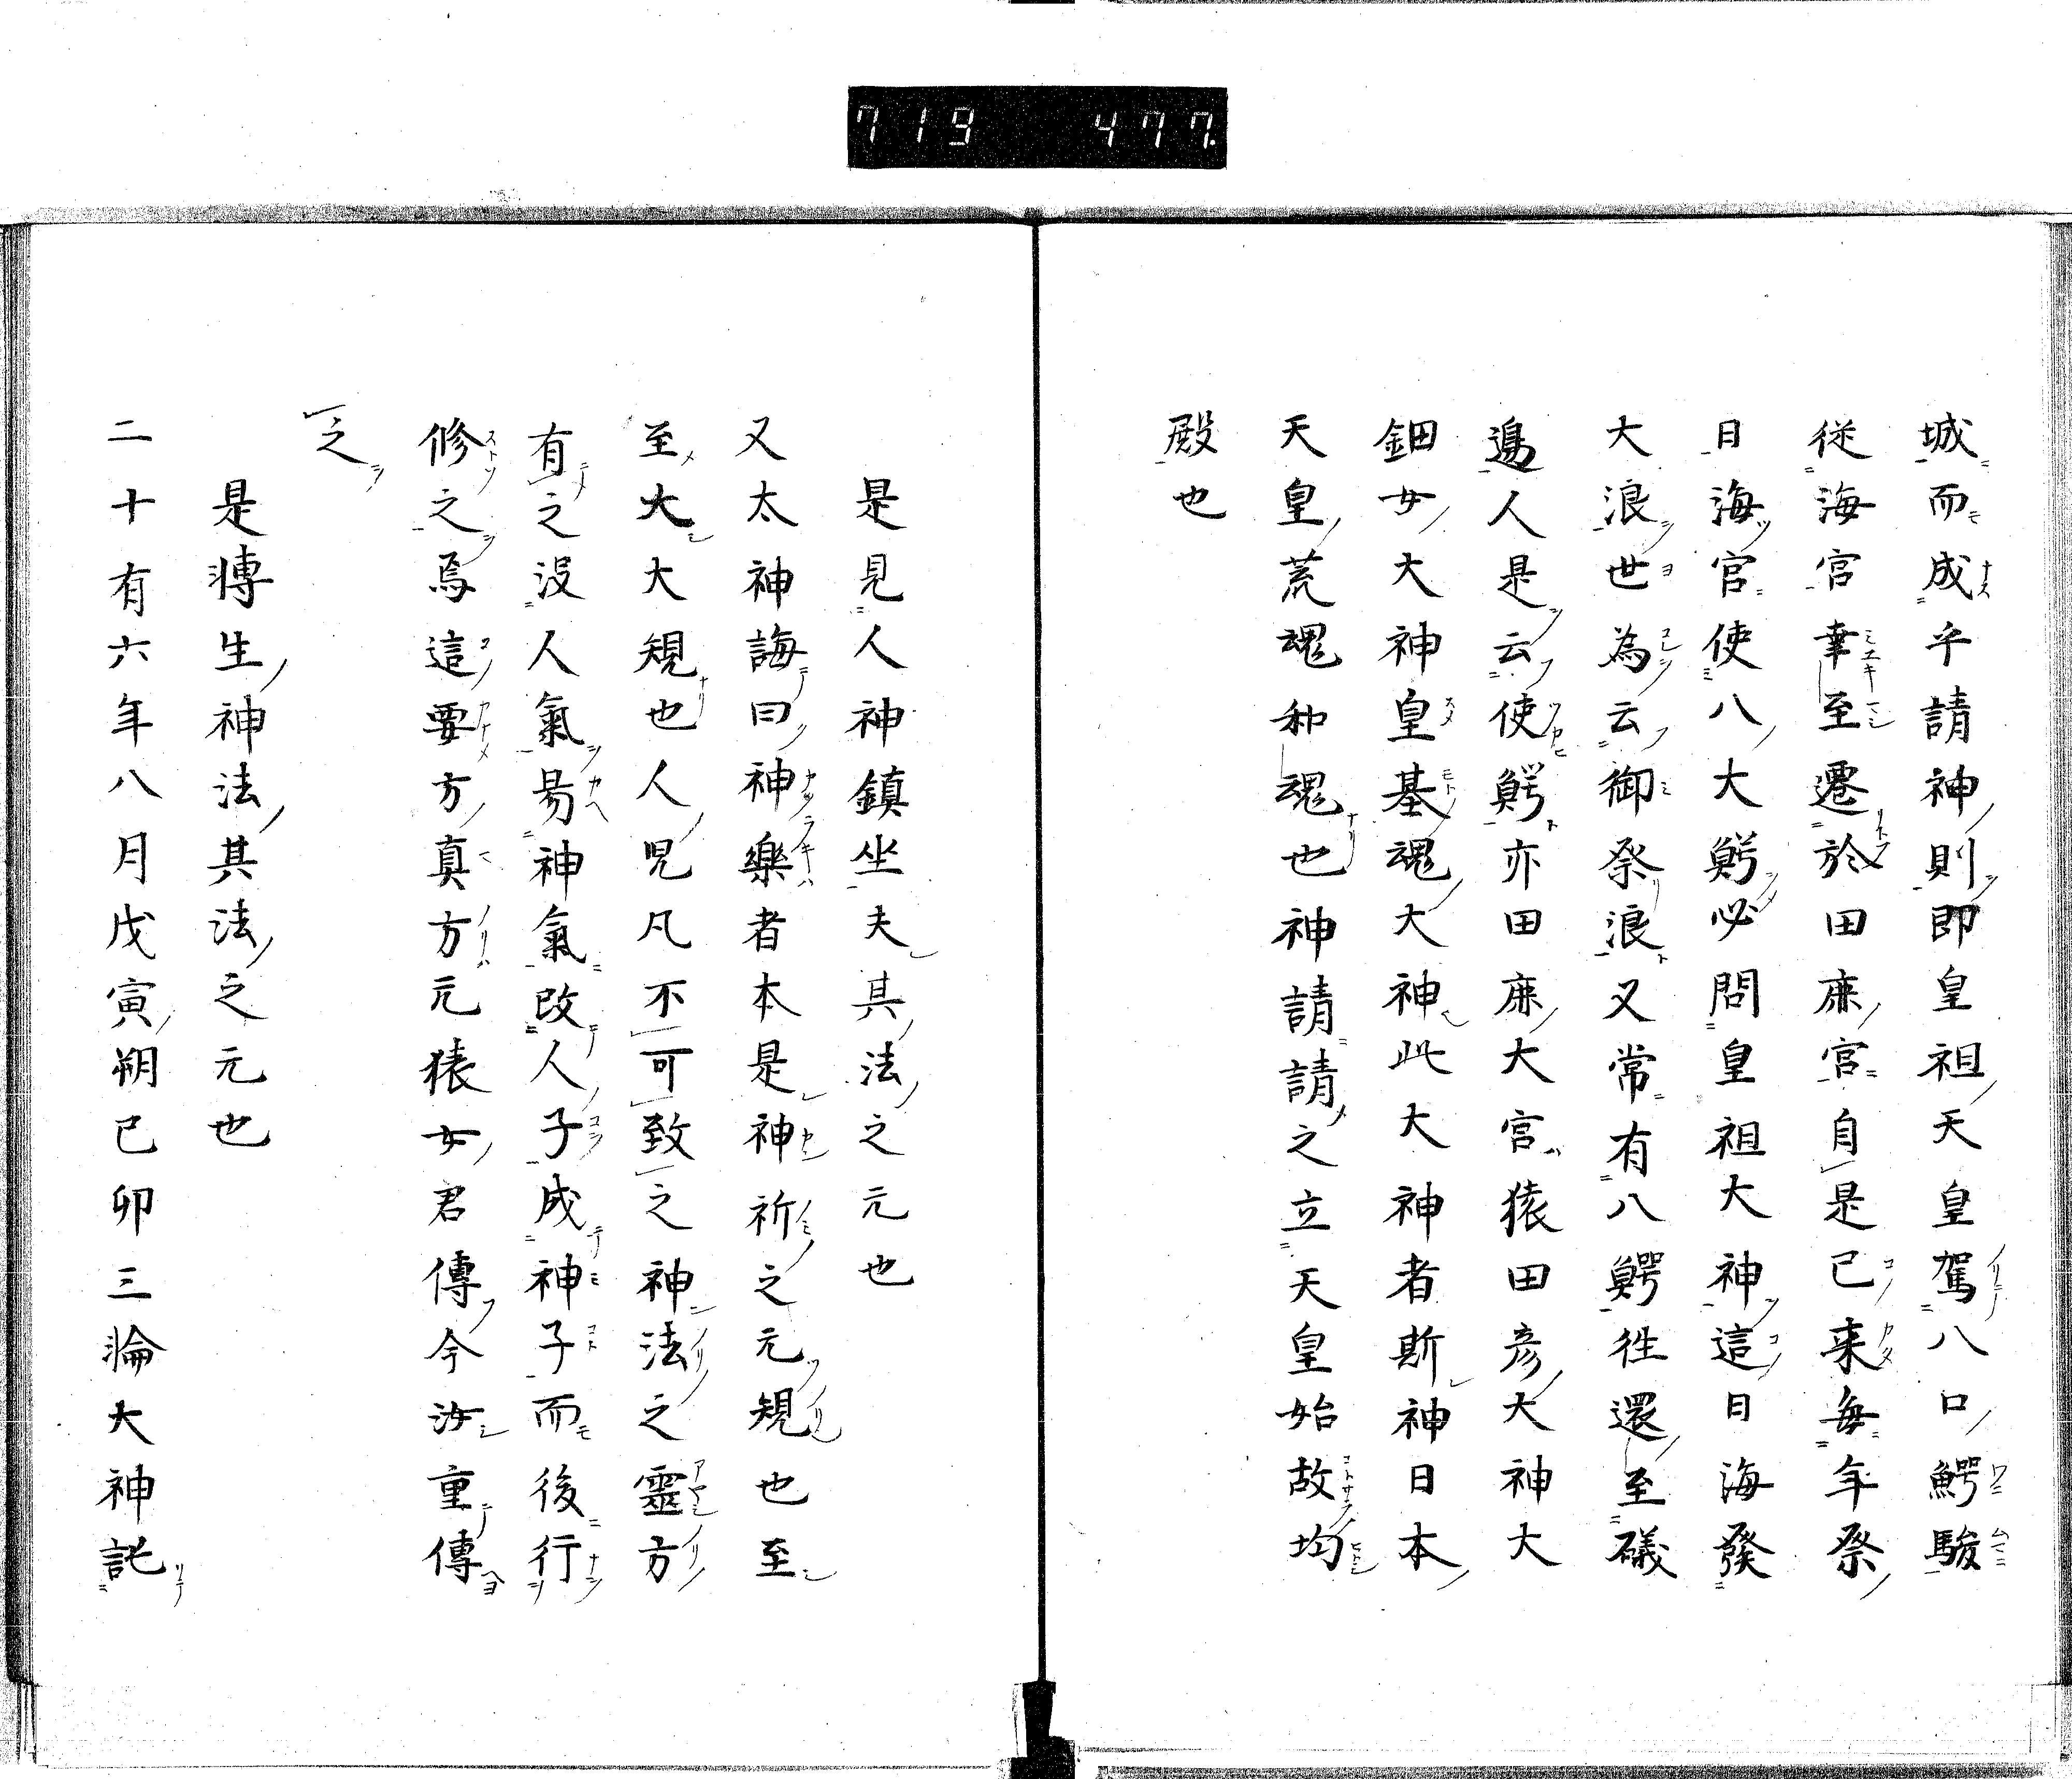 719 477.
城而成乎請神則即皇祖天皇駕八口鰐駿
従海宮幸至遷於田庶宮自是已来毎年祭
日海宮使八大鰐必問皇祖大神這日海發
大浪世為云御祭浪又常有八鰐徃還至礒
邉人是云使鰐亦田庶大宮猿田彦大神大
鈿女大神皇基魂大神此大神者斯神日本
天皇荒魂和魂也神請請之立天皇始故均
殿也
是見人神鎮坐夫其法之元也
又太神誨曰神樂者本是神祈之元規也至
至大大規也人児凡不可致之神法之靈方
有之没人氣昜神氣改人子成神子而後行
修之焉這要方真方元猿女君傳今汝重傳
之
是轉生神法其法之元也
二十有六年八月戊寅朔己卯三淪大神託